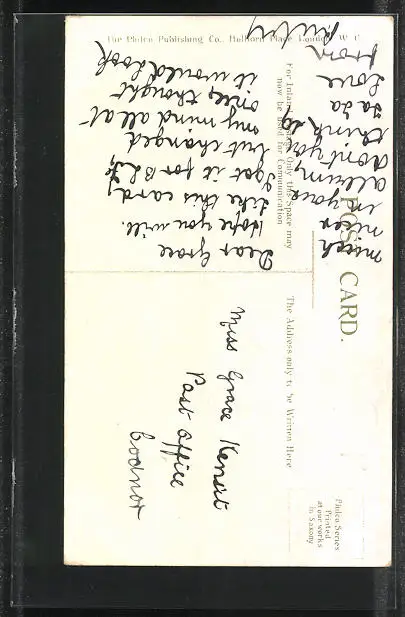 The Philco Publishing Co., Holborn Place London, W.C.
POST CARD.
For Inland Postage Only this Space may
now be used for Communication
The Address only to be Written Here
Philco Series
Printed
at our works
in Saxony
Dear Grace
Hope you will
like this card
I got it for
but changed
my mind all at
once, thought
it would look
much
nicer
in your
album,
don't you
think so
Ta Ta
Love
from
Miss Grace
Post Office
Codnor